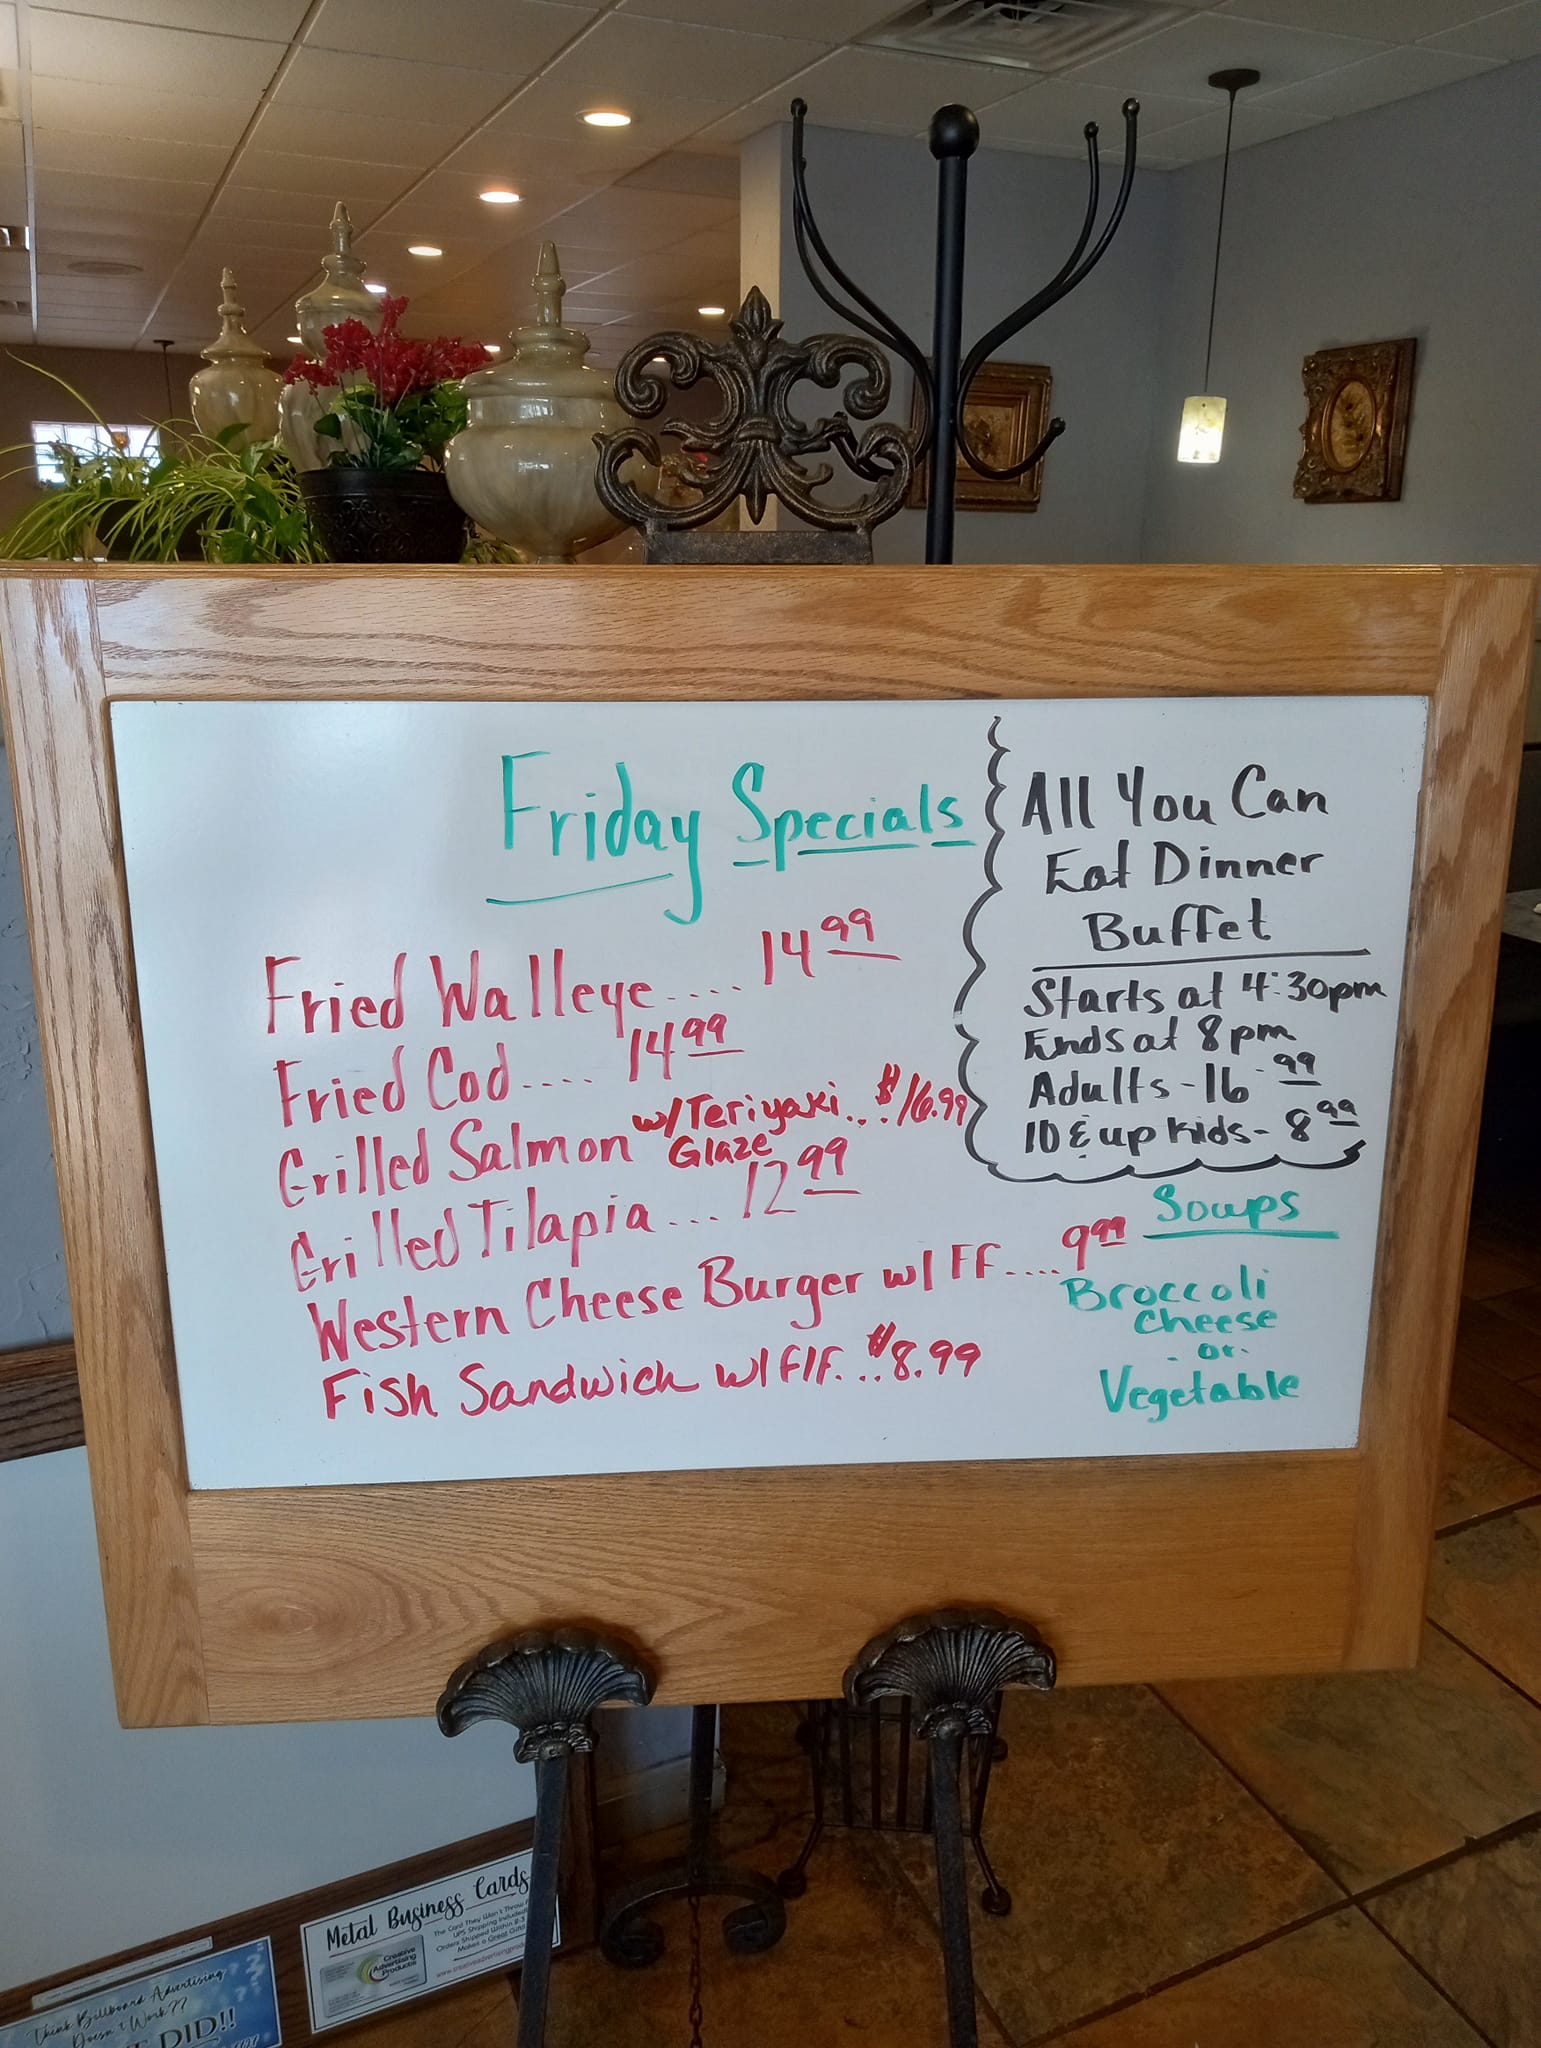 Friday Specials
Fried Walleye.... 14 99
Fried Cod.... 14 99
Grilled Salmon w/Teriyaki... $16.99
Glaze
Grilled Tilapia... 12 99
Western Cheese Burger w/ FF.... 9 99
Fish Sandwich w/ F/F... $8.99
All You Can
Eat Dinner
Buffet
Starts at 4:30pm
Ends at 8pm
Adults - 16 99
10 & up kids - 8 99
Soups
Broccoli
Cheese
- or -
Vegetable
Metal Business Cards
The Card They Won't Throw
UPS Shipping Included
Orders Shipped Within
Makes a Great Gift
Creative
Advertising
Products
Think Billboard Advertising
Doesn't Work??
DID!!